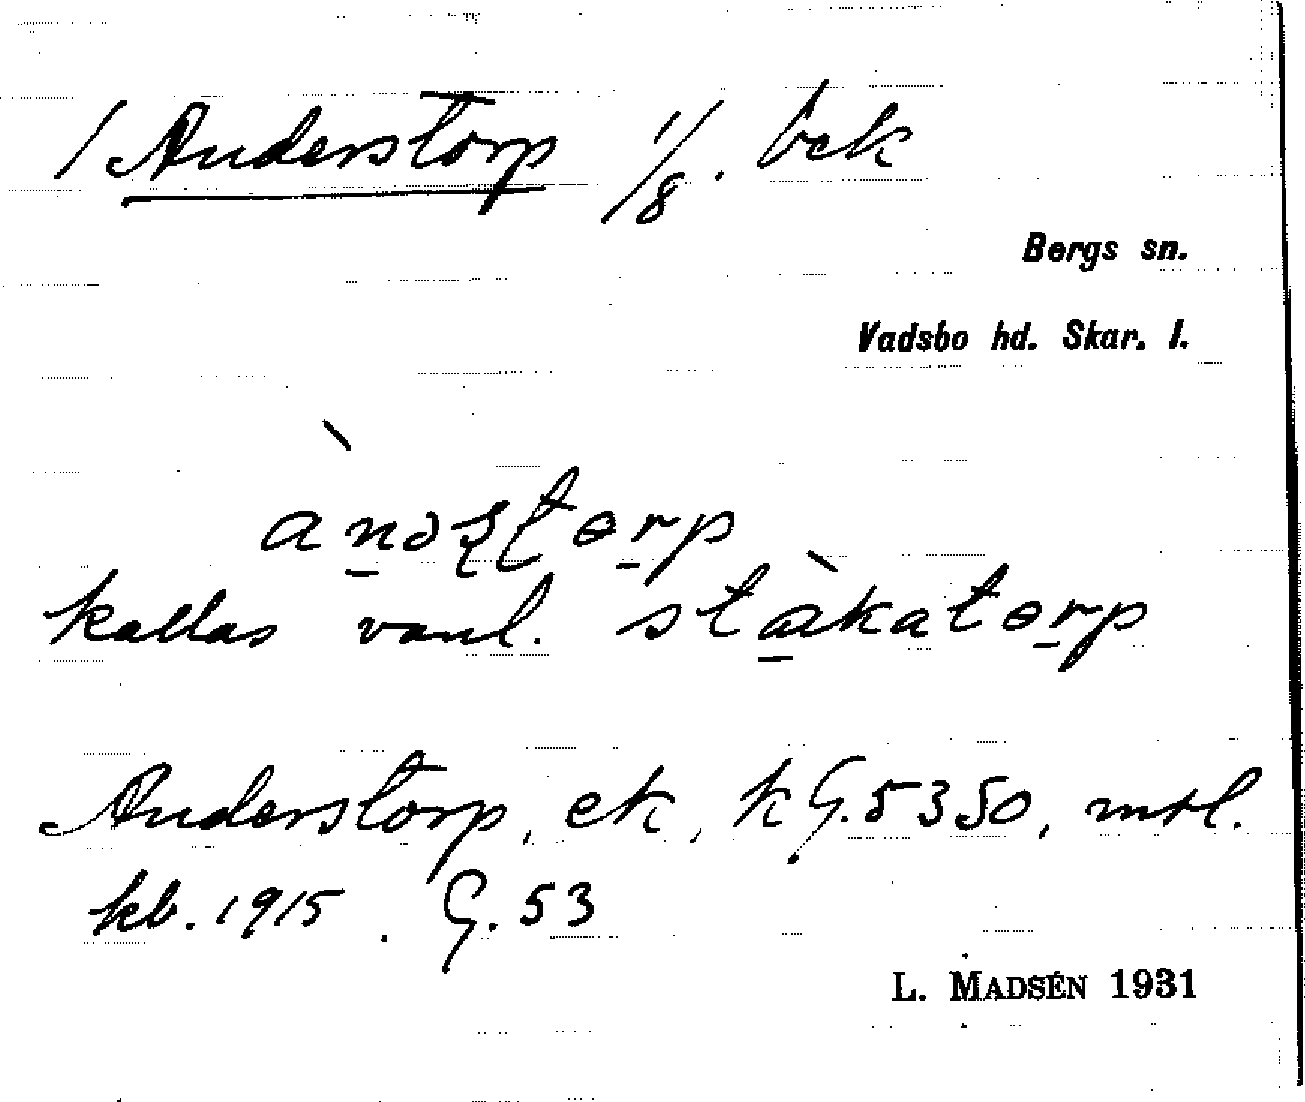 / Anderstorp 1/8. bek
Bergs sn.
Vadsbo hd. Skar. l.
kallas vanl. stakatorp
Anderstorp, ek, k G.5350, mtl.
kb. 1915. G. 53
L. MADSÉN 1931